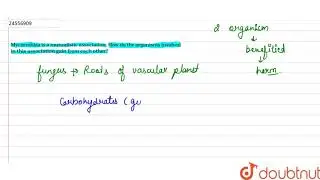 24556909
Mycorrhiza is a mutualistic association. How do the organisms involved
in this association gain from each other?
2 organism
↓
benefitted
↓
harm
fungus → Roots of vascular planet
Carbohydrates (g
doubtnut